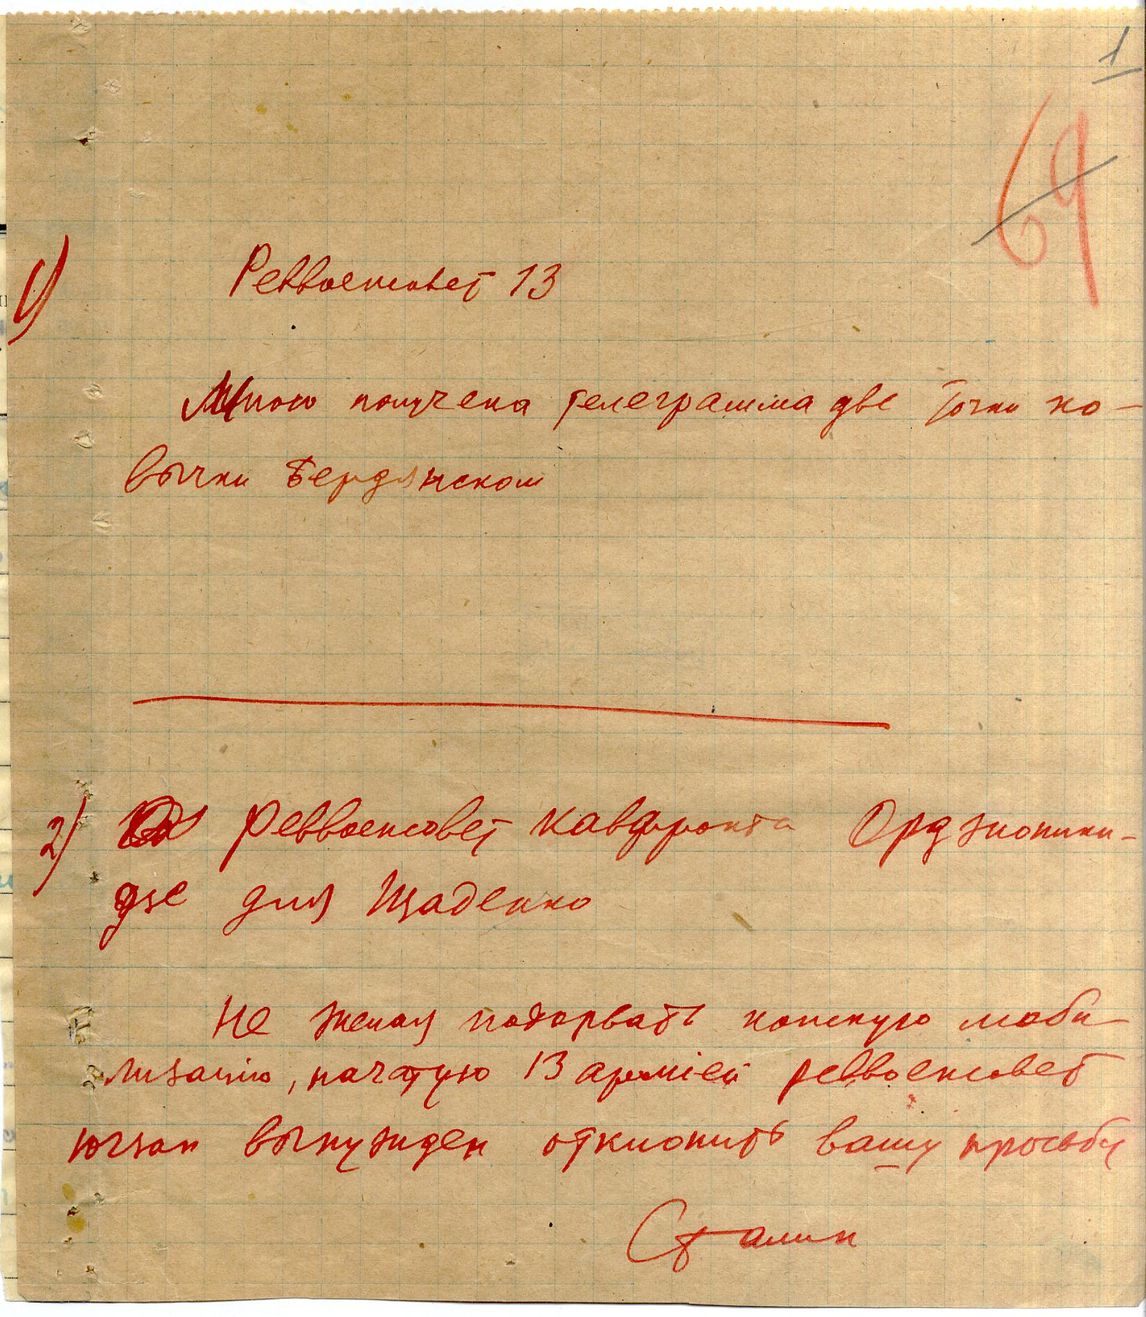 1
69
1) Реввоенсовет 13
Мною получена телеграмма две точки ко-
вычки Бердянском
2) Реввоенсовет Кавфронта Орджоники-
дзе для Щаденко
Не желая подорвать конскую моби
лизацию, начатую 13 армией реввоенсовет
югзап вынужден отклонить вашу просьбу
Сталин